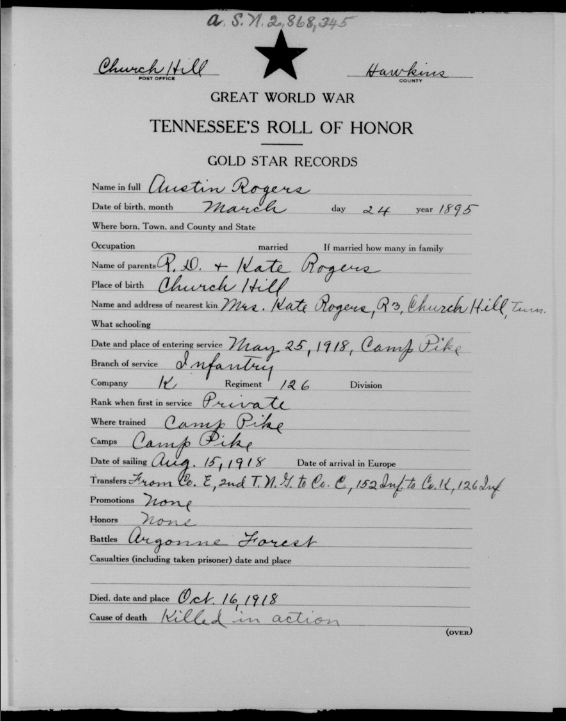 A.S.N. 2,868,345
Church Hill Hawkins
POST OFFICE COUNTY
GREAT WORLD WAR
TENNESSEE'S ROLL OF HONOR
GOLD STAR RECORDS
Name in full Austin Rogers
Date of birth, month March day 24 year 1895
Where born, Town, and County and State
Occupation married If married how many in family
Name of parents R. D. + Kate Rogers
Place of birth Church Hill
Name and address of nearest kin Mrs. Kate Rogers, R3, Church Hill, Tenn.
What schooling
Date and place of entering service May 25, 1918, Camp Pike
Branch of service Infantry
Company K Regiment 126 Division
Rank when first in service Private
Where trained Camp Pike
Camps Camp Pike
Date of sailing Aug. 15, 1918 Date of arrival in Europe
Transfers From Co. E, 2nd T. N. G. to Co. C, 152 Inf to Co. K, 126 Inf
Promotions None
Honors None
Battles Argonne Forest
Casualties (including taken prisoner) date and place
Died, date and place Oct. 16, 1918
Cause of death Killed in action
(OVER)